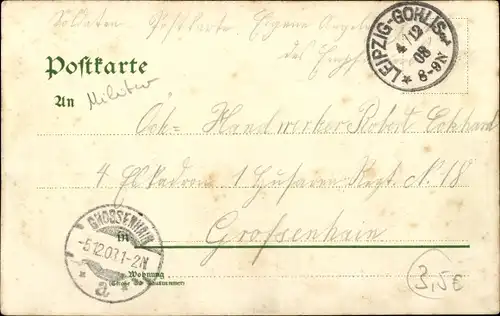 Soldaten Postkarte Eigene Angelegenheit
des Empfängers
LEIPZIG-GOHLIS
4/12
08
8-9N
Postkarte
An
Militär
Oek= Handwerker Robert Eckhardt
4 Eskadron 1 Husaren Regt N. 18
Grossenhain
GROSSENHAIN
-5.12.08.1-2N
a
in
Wohnung
(Straße und Hausnummer)
3,5€